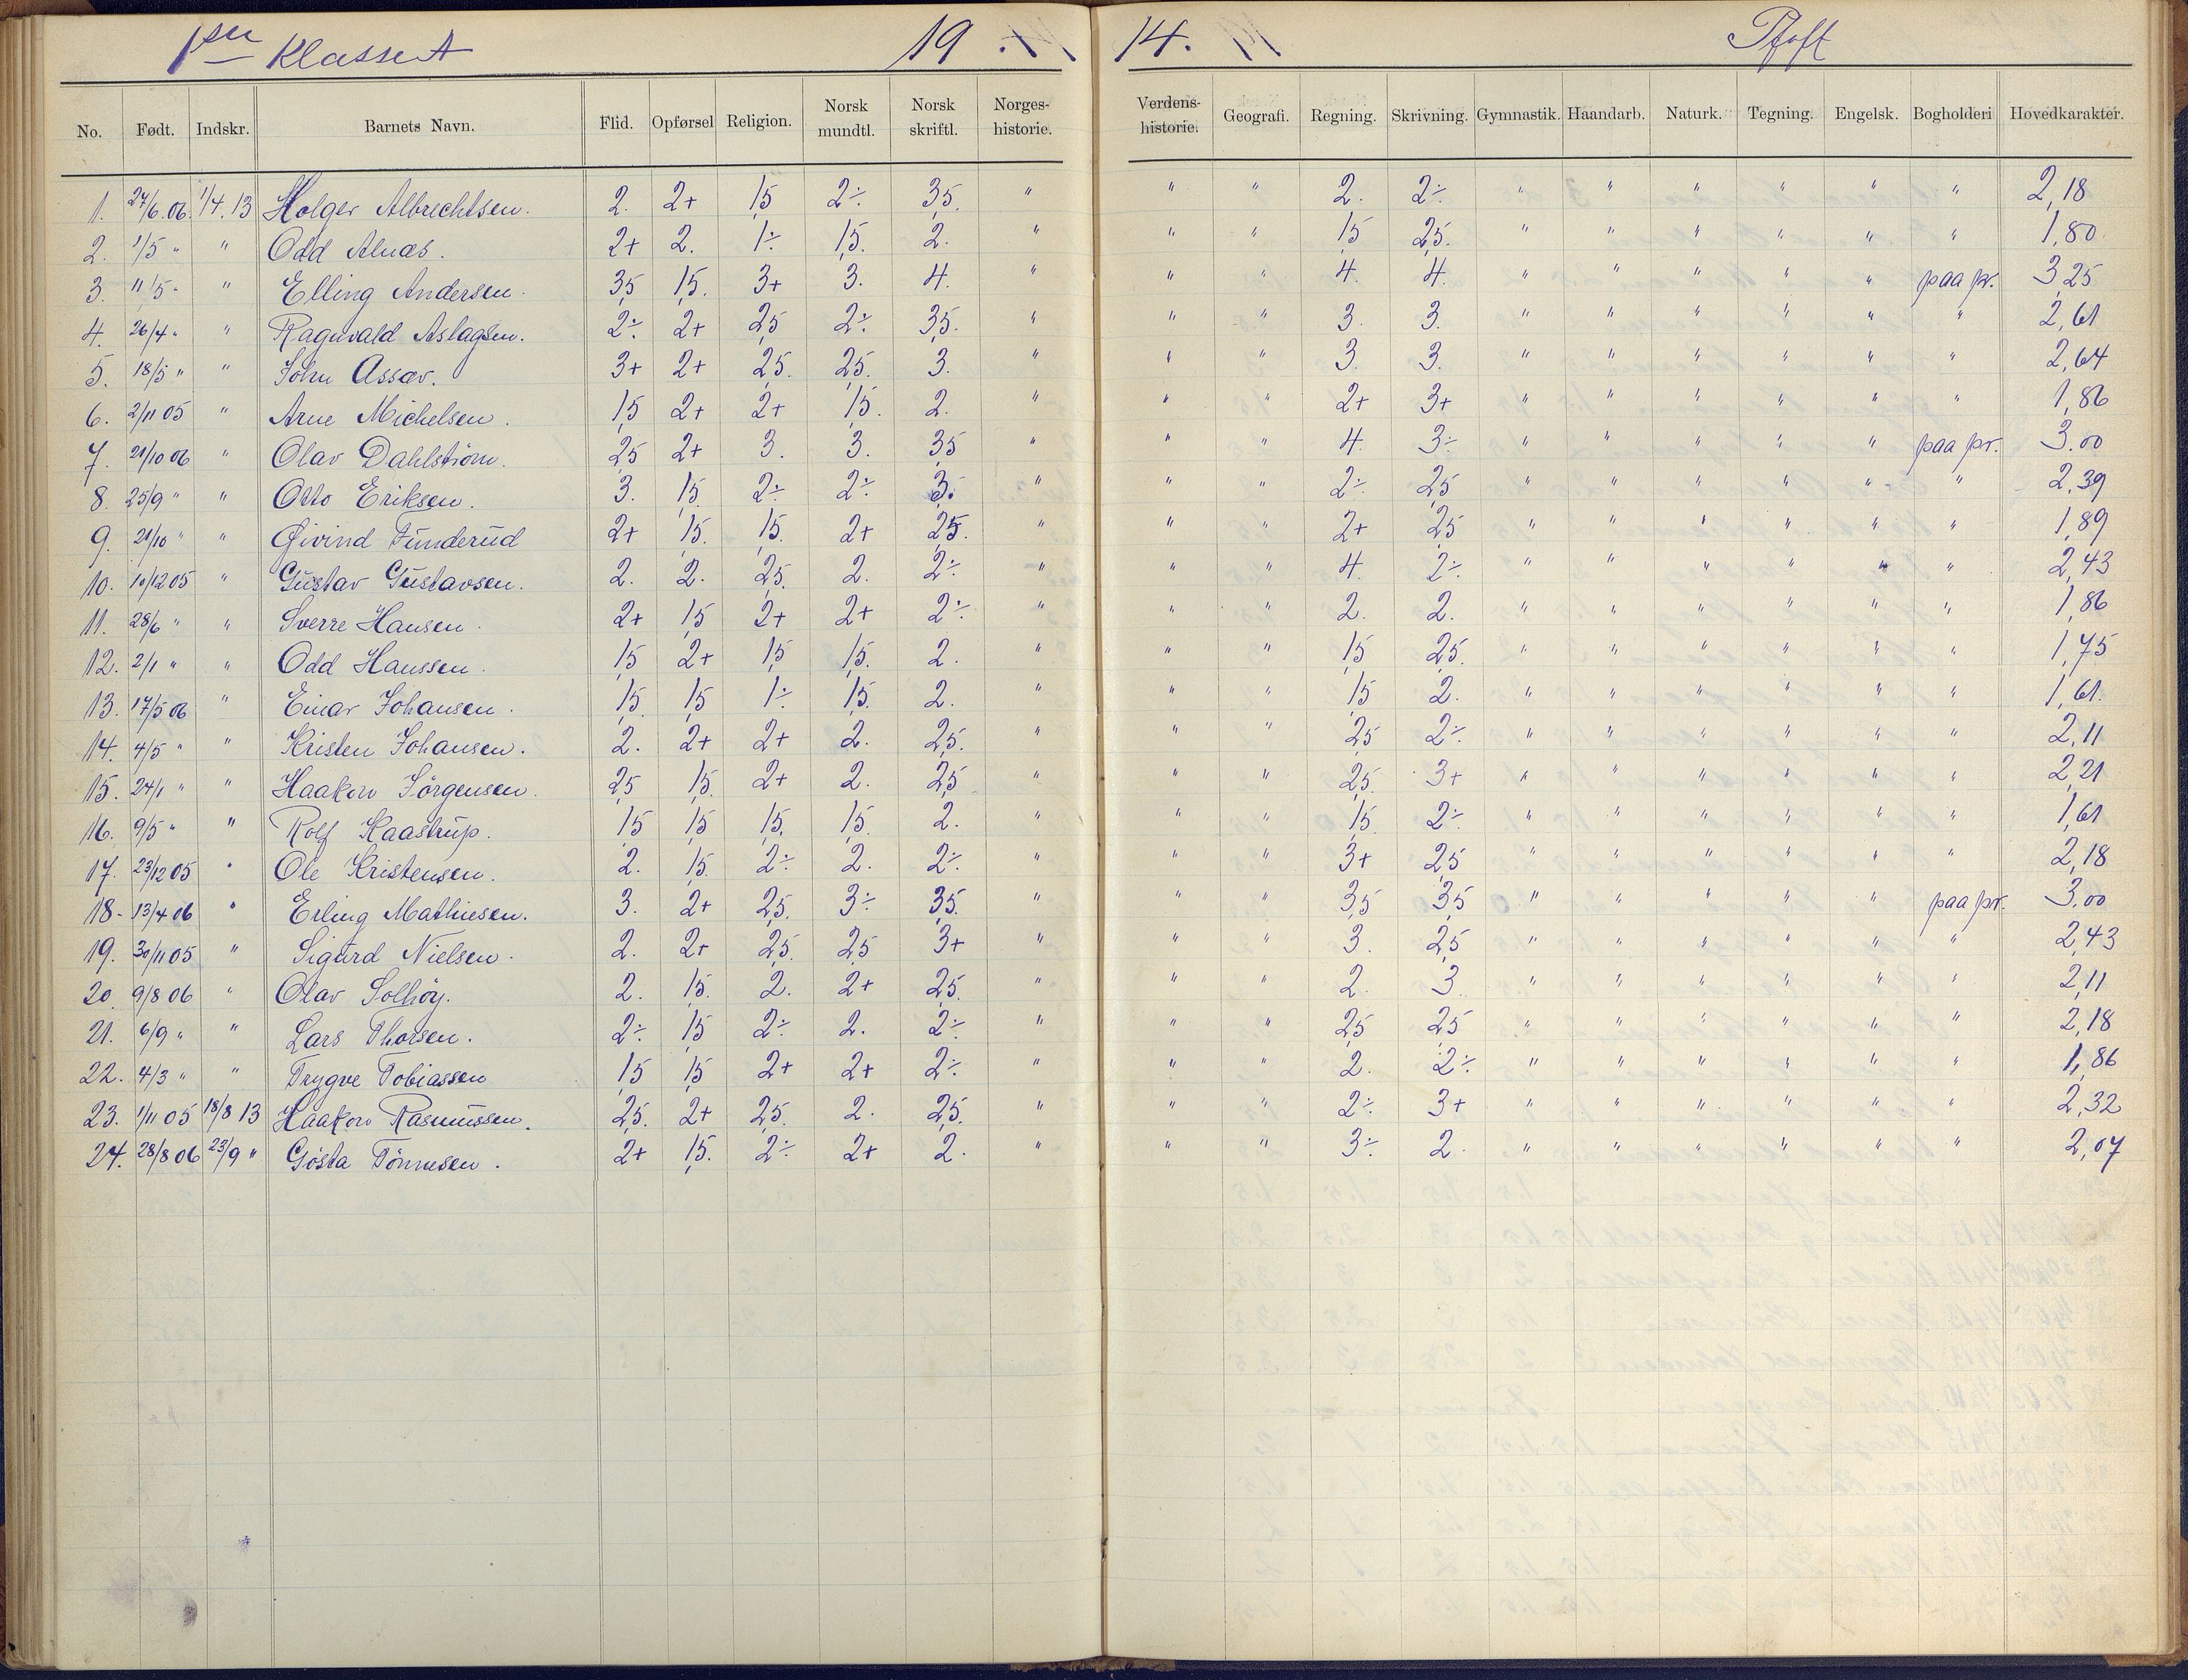 1ste Klasse A 19 14.
No. Født. Indskr. Barnets Navn. Flid. Opførsel Religion. Norsk mundtl. Norsk skriftl. Norges-historie. Verdens-historie. Geografi. Regning. Skrivning. Gymnastik. Haandarb. Naturk. Tegning. Engelsk. Bogholderi Hovedkarakter.
1. 27/6.06. 1/4.13 Holger Albrechtsen. 2. 2+ 1,5 2÷ 3,5. " " " 2. 2÷ " " " " " " 2,18
2. 1/5 " " Odd Alnæs. 2+ 2. 1÷ 1,5. 2. " " " 1,5 2,5. " " " " " " 1,80
3. 11/5 " " Elling Andersen. 3,5 1,5. 3+ 3. 4. " " " 4. 4. " " " " " paa pr. 3,25
4. 26/4 " " Ragnvald Aslagsen. 2÷ 2+ 2,5 2÷ 3,5. " " " 3. 3. " " " " " " 2,61
5. 18/5 " " John Assev. 3+ 2+ 2,5. 2,5. 3. " " " 3. 3. " " " " " " 2,64
6. 2/11 05 " Arne Michelsen. 1,5 2+ 2+ 1,5. 2. " " " 2+ 3+ " " " " " " 1,86
7. 21/10 06 " Olav Dahlström. 2,5 2+ 3. 3. 3,5 " " " 4. 3÷ " " " " " paa pr. 3.00
8. 25/9 " " Otto Eriksen. 3. 1,5 2÷ 2÷ 3. " " " 2÷ 2,5 " " " " " " 2,39
9. 21/10 " " Øivind Funderud 2+ 1,5. 1,5. 2+ 2,5. " " " 2+ 2,5 " " " " " " 1,89
10. 10/12 05 " Gustav Gustavsen. 2. 2. 2,5. 2. 2÷ " " " 4. 2÷ " " " " " " 2,43
11. 28/6 " " Sverre Hansen. 2+ 1,5 2+ 2+ 2÷ " " " 2. 2. " " " " " " 1,86
12. 2/1 " " Odd Hanssen. 1,5 2+ 1,5 1,5. 2. " " " 1,5 2,5. " " " " " " 1,75
13. 17/5 06 " Einar Johansen. 1,5 1,5 1÷ 1,5. 2. " " " 1,5 2. " " " " " " 1,61.
14. 4/5 " " Kristen Johansen. 2. 2+ 2+ 2. 2,5. " " " 2,5 2÷ " " " " " " 2,11
15. 24/1 " " Haakon Jörgensen. 2,5 1,5. 2+ 2. 2,5 " " " 2,5. 3+ " " " " " " 2,21
16. 9/5 " " Rolf Kaastrup. 1,5 1,5 1,5. 1,5 2. " " " 1,5. 2÷ " " " " " " 1,61
17. 23/12 05 " Ole Kristensen. 2. 1,5. 2÷ 2. 2÷ " " " 3+ 2,5 " " " " " " 2,18
18. 13/4 06 " Erling Mathiesen. 3. 2+ 2,5. 3÷ 3,5. " " " 3,5 3,5 " " " " " paa pr. 3.00
19. 30/11 05 " Sigurd Nielsen. 2. 2+ 2,5. 2,5 3+ " " " 3. 2,5 " " " " " " 2,43
20. 9/8 06 " Olav Solhöy. 2. 1,5. 2. 2+ 2,5. " " " 2. 3. " " " " " " 2,11
21. 6/9 " " Lars Thorsen. 2÷ 1,5 2÷ 2. 2÷ " " " 2,5 2,5 " " " " " " 2,18
22. 4/3 " " Trygve Tobiassen 1,5 1,5 2+ 2+ 2÷ " " " 2. 2÷ " " " " " " 1,86
23. 1/11 05 18/8 13 Haakon Rasmussen. 2,5. 2+ 2,5. 2. 2,5. " " " 2÷ 3+ " " " " " " 2,32
24. 28/8 06 23/9 " Gösta Tönnesen. 2+ 1,5. 2÷ 2+ 2. " " " 3÷ 2. " " " " " " 2,07